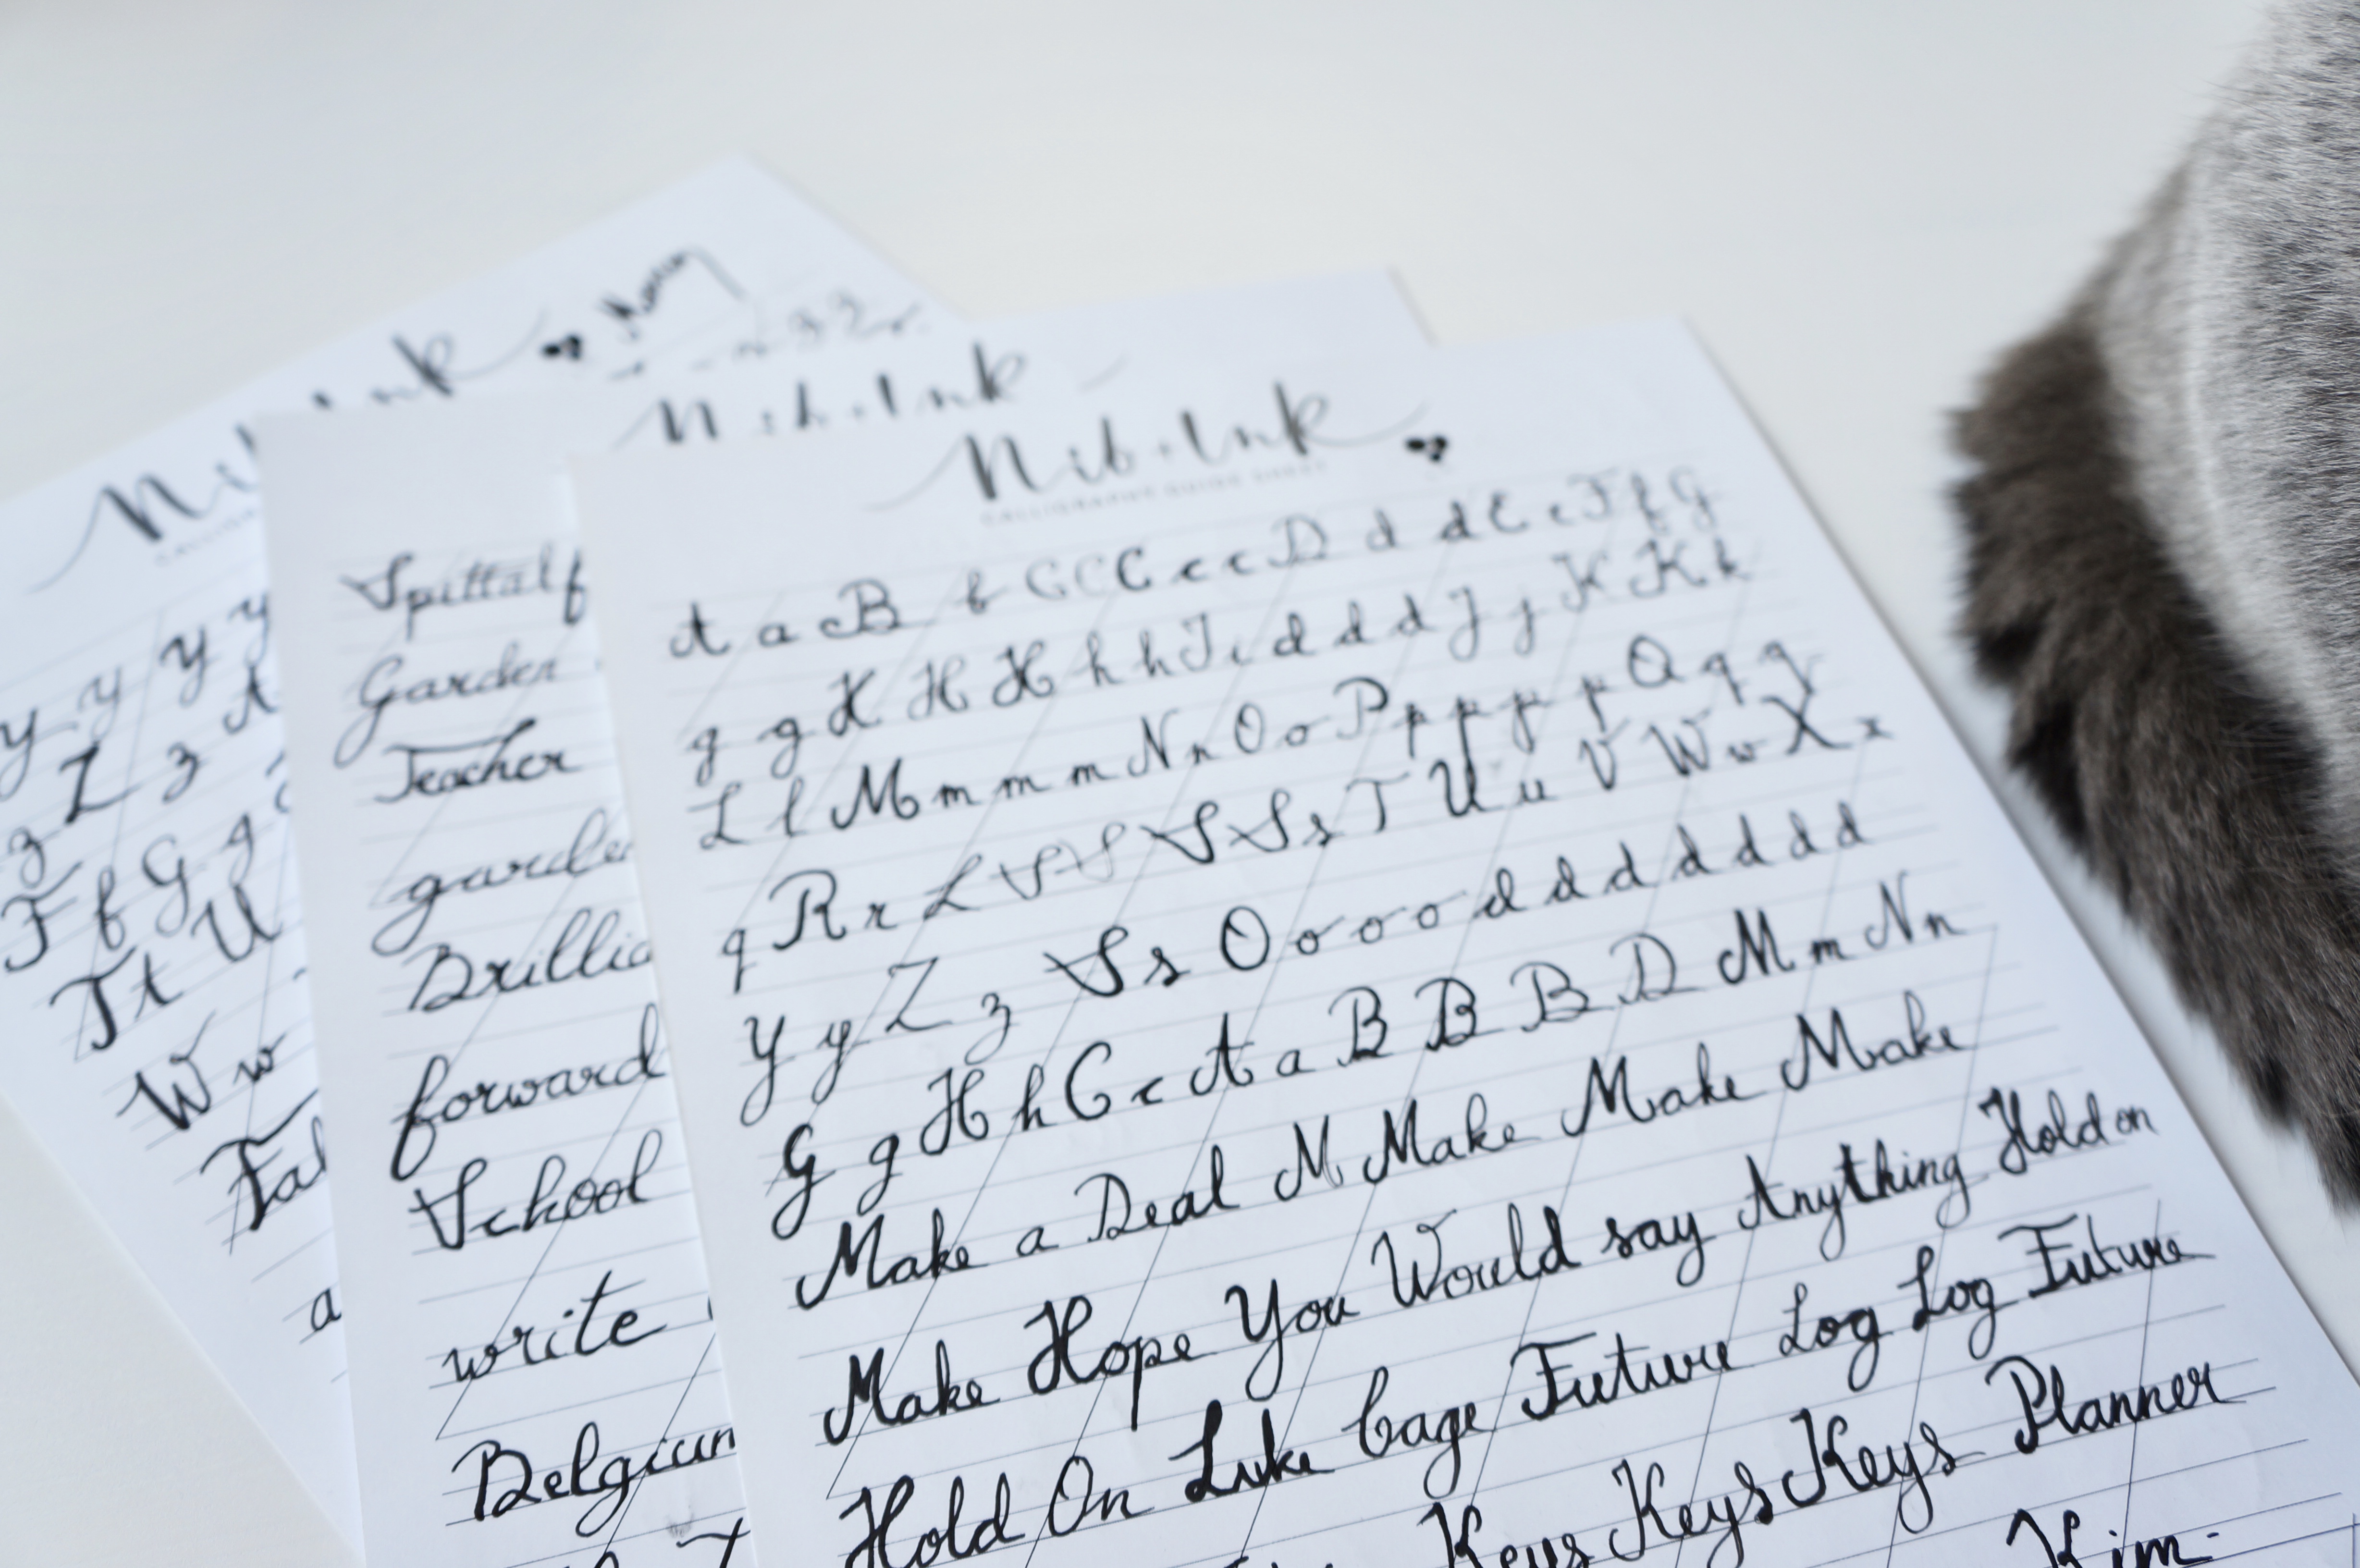 Nib + Ink
CALLIGRAPHY GUIDE SHEET
A a B b C C C c c D d d E e F f G
g g H H H h h I i d d d J j K K k
L l M m m m N n O o P p p p p Q q q
q R r L S S S S s T U u V W w X x
Y y Z z S s O o o o d d d d d d d
G g H h C c A a B B B D M m N n
Make a Deal M Make Make Make
Make Hope You Would say Anything Hold on
Hold On Luke Cage Future Log Log Future
Keys Keys Keys Planner
Kim
Nib + Ink
Spittalf
Garden
Teacher
garde
Brillia
forward
School
write
Belgium
Nib Ink
y y y y
z Z z A
F f G g
T t U
W w
Fal
a